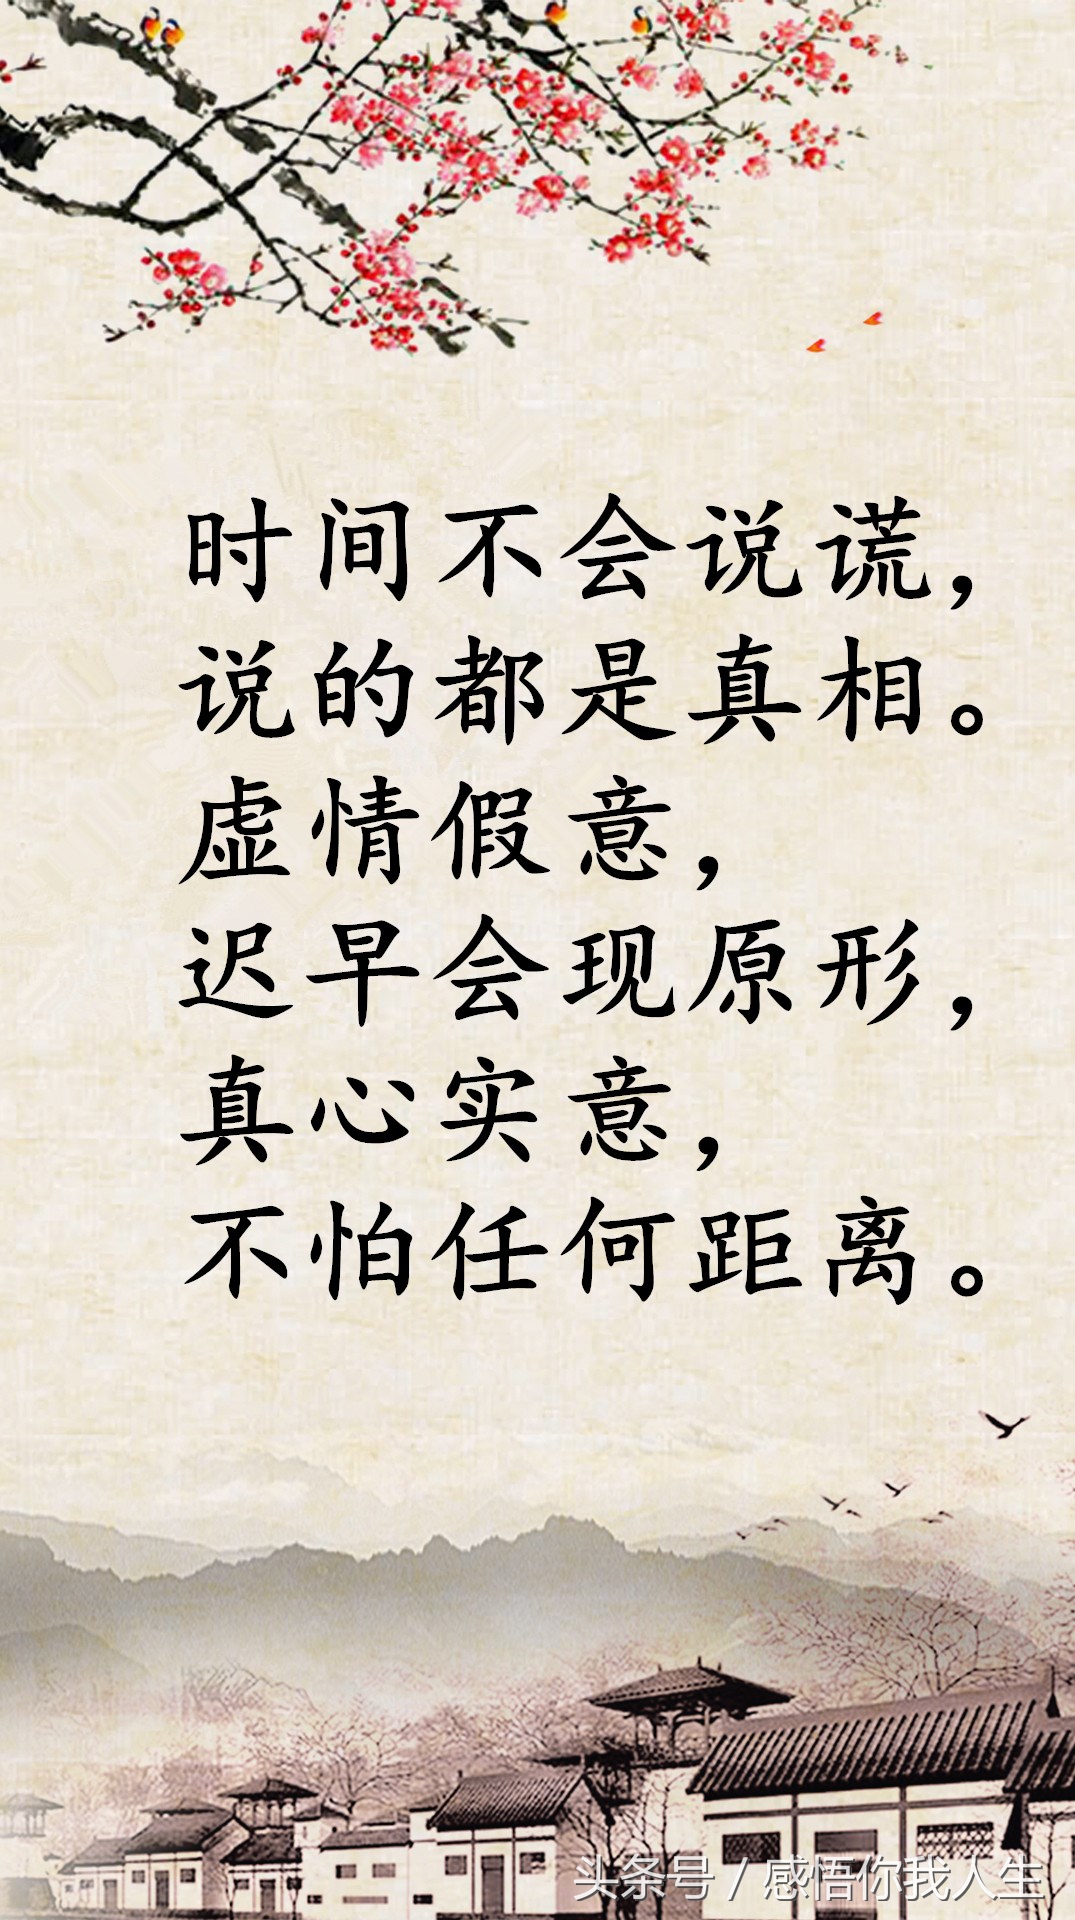 时间不会说谎，
说的都是真相。
虚情假意，
迟早会现原形，
真心实意，
不怕任何距离。
头条号 / 感悟你我人生